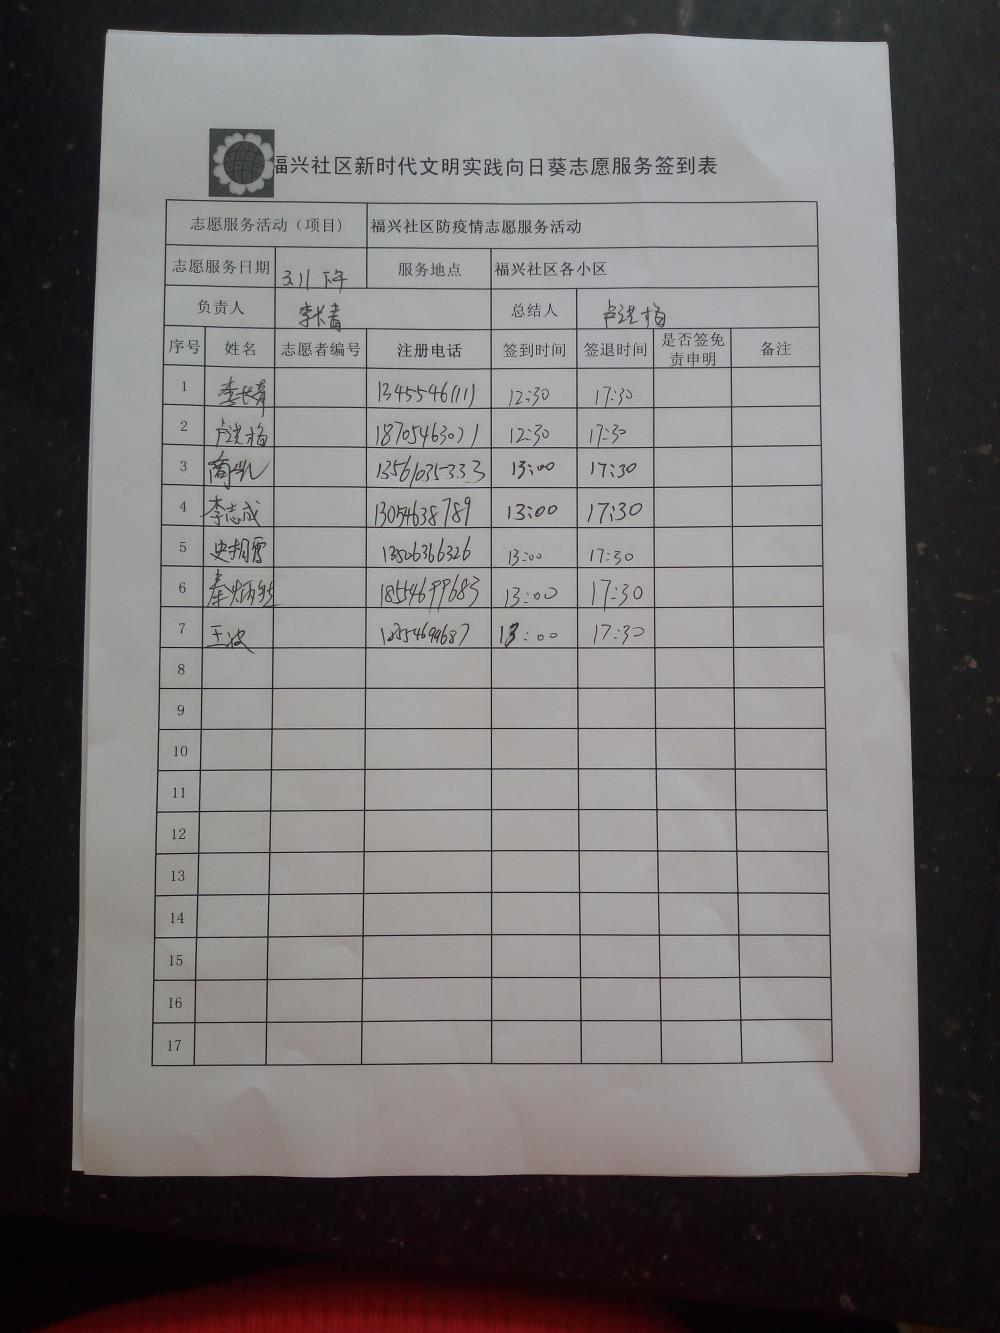 福兴社区新时代文明实践向日葵志愿服务签到表
志愿服务活动（项目） 福兴社区防疫情志愿服务活动
志愿服务日期 3.11 下午 服务地点 福兴社区各小区
负责人 李长青 总结人 卢洪梅
序号 姓名 志愿者编号 注册电话 签到时间 签退时间 是否签免责申明 备注
1 李长青 13455461111 12:30 17:30
2 卢洪梅 18705463071 12:30 17:30
3 商凯 13561035333 13:00 17:30
4 李志成 13054638789 13:00 17:30
5 13506366326 13:00 17:30
6 18554699683 13:00 17:30
7 王波 13:00 17:30
8
9
10
11
12
13
14
15
16
17